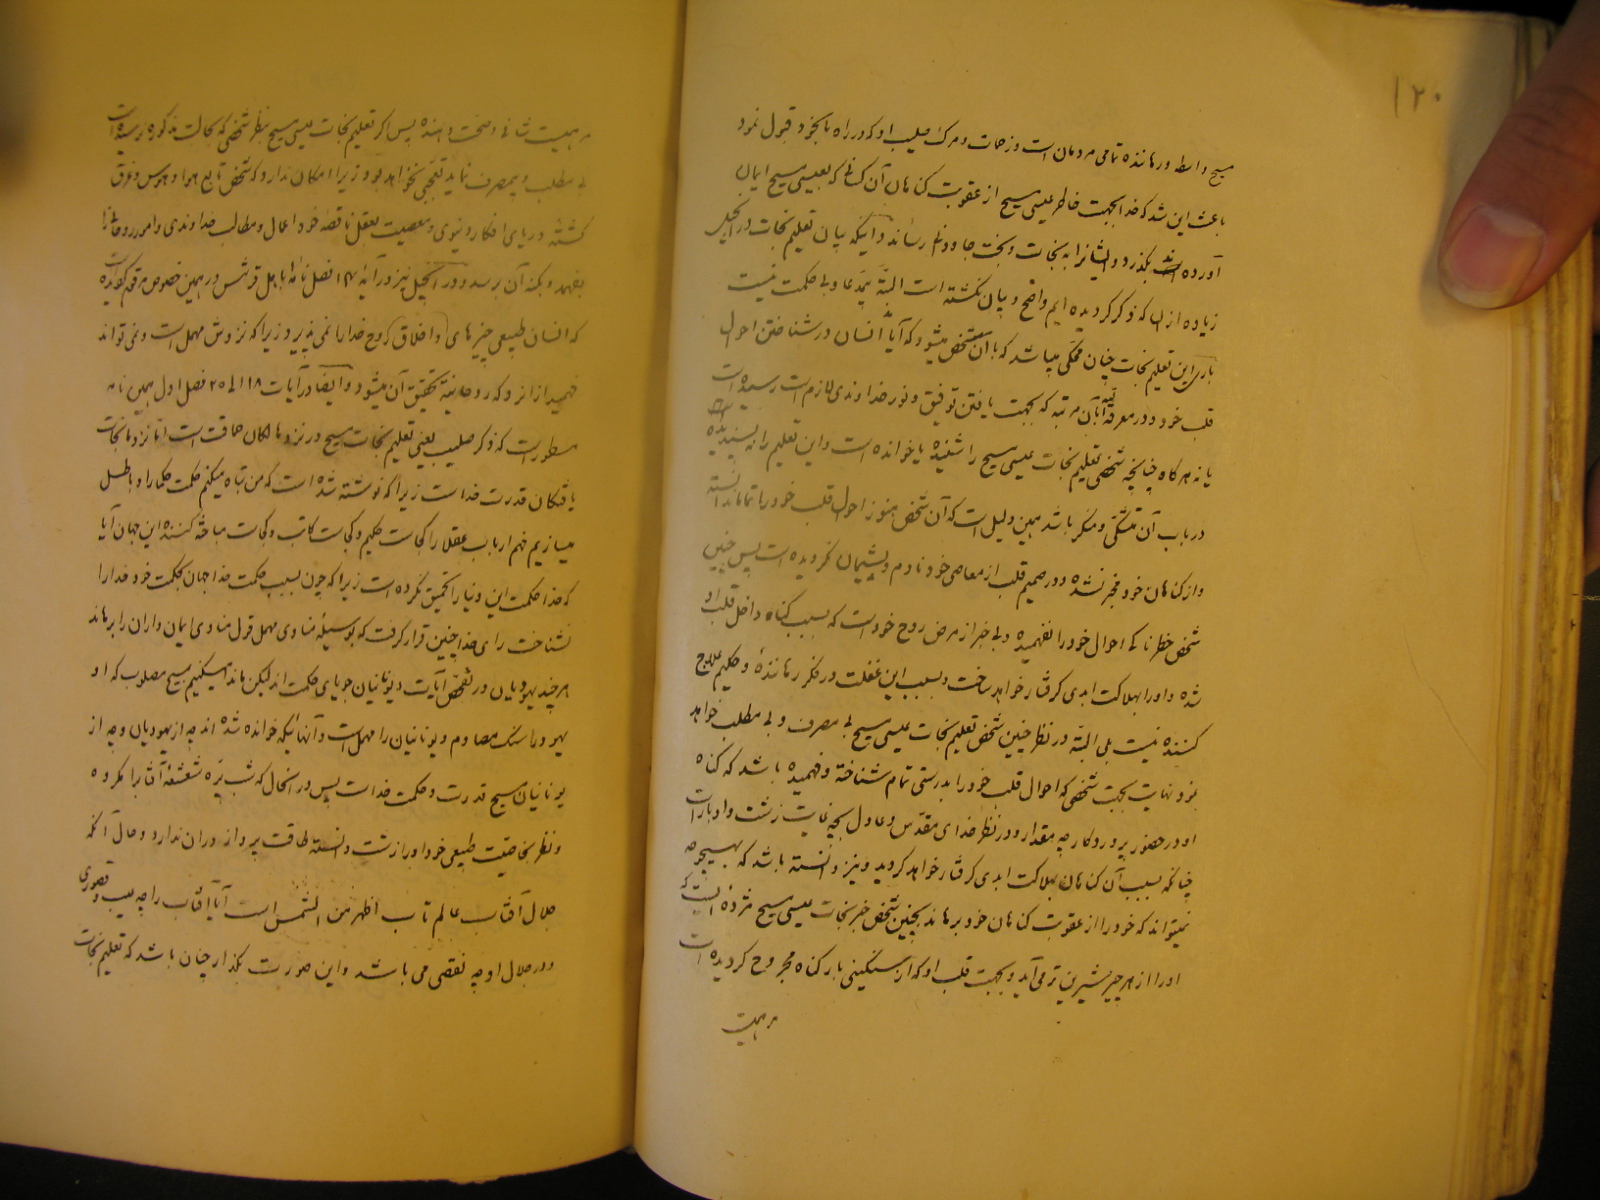 ۱۲۰
مسیح واسطه و رهاننده تمامی مردمان است و زحمات و مرگ صلیب او که در راه ما بخود قبول نمود
باعث این شد که خدا بجهت خاطر عیسی مسیح از عقوبت کناهان آن کسانی که بعیسی مسیح ایمان
آورده اند بگذرد و ایشانرا به نجات و بخت جاودانی رساند و اینکه بیان تعلیم نجات در انجیل
زیاده از آن که ذکر کردیده ایم واضح و بیان نکشته است البته بیمدعا و بی حکمت نیست
باری این تعلیم نجات چنان محکی میباشد که با آن مشخص میشود که آیا انسان در شناختن احوال
قلب خود و در معرفة الله بآن مرتبه که بجهت یافتن توفیق و نور خداوندی لازم است رسیده است
یا نه هر کاه چنانچه شخصی تعلیم نجات عیسی مسیح را شنیده یا خوانده است و این تعلیم را نپسندیده
در باب آن متشکی و منکر باشد همین دلیل است که آن شخص هنوز احوال قلب خود را تماما ندانسته
و از کناهان خود مخبر نشده و در صمیم قلب از معاصی خود نادم و پشیمان نکردیده است پس چنین
شخص خطرناکی احوال خود را نفهمیده و بی خبر از مرض روح خود است که بسبب کناه داخل قلب او
شده و او را بهلاکت ابدی کرفتار خواهد ساخت و بسبب این غفلت در فکر رهاننده و حکیم علاج
کننده نیست بلی البته در نظر چنین شخص تعلیم نجات عیسی مسیح بی مصرف و بی مطلب خواهد
بود نهایت بجهت شخصی که احوال قلب خود را بدرستی تمام شناخته و فهمیده باشد که کناه
او در حضور پروردکار چه مقدار و در نظر خدای مقدس و عادل بچه غایت زشت و ادبار است
چنانکه بسبب آن کناهان بهلاکت ابدی کرفتار خواهد کردید و نیز دانسته باشد که بهیچوجه
نمیتواند که خود را از عقوبت کناهان خود برهاند بچنین شخص خبر نجات عیسی مسیح مژده ایست که
او را از هر چیز شیرین تر می آید و بجهت قلب او که از سنگینی بار کناه مجروح کردیده است
مرهمیت
مرهمیت شافی و صحت دهنده پس اکر تعلیم نجات عیسی مسیح بنظر شخصی که بحالت مذکوره نرسیده است
بی مطلب و بیمصرف نماید تعجبی نخواهد بود زیرا امکان ندارد که شخص تابع هوا و هوس و غرق
کشته دریای افکار دنیوی و معصیت بعقل ناقصه خود اعمال و مطالب خداوندی و امور روحانی را
بفهمد و بکنه آن برسد و در انجیل نیز در آیهٔ ۱۴ فصل نامه باهل قرنتس در همین خصوص مرقوم کردیده
که انسان طبیعی چیزهای (و اخلاق) روح خدا را نمی پذیرد زیرا که نزدش مهمل است و نمی تواند
فهمید از انرو که روحانیة تحقیق آن میشود و ایضا در آیات ۱۸ الی ۲۵ فصل اول همین نامه
مسطور است که ذکر صلیب یعنی تعلیم نجات مسیح در نزد هالکان حماقت است اما نزد ما نجات
یافتکان قدرت خداست زیرا که نوشته شده است که من تباه میکنم حکمت حکما را و باطل
میسازیم فهم ارباب عقل را کجاست حکیم و کجاست کاتب و کجاست مباحثه کننده این جهان آیا
که خدا حکمت این دنیا را تحمیق نکرده است زیرا که چون بسبب حکمت خدا جهان بحکمت خود خدا را
نشناخت رای خدا چنین قرار کرفت که بوسیلهٔ منادی مهمل قول منادی ایمان داران را برهاند
هر چند یهودیان در تفحص آیات و یونانیان جویای حکمت اند لیکن ما ندا میکنیم بمسیح مصلوب که او
یهود را سنگ مصادم و یونانیان را مهمل است و آنهائیکه خوانده شده اند چه از یهودیان و چه از
یونانیان مسیح قدرت و حکمت خداست پس در انحال که شب پره شعشعهٔ آفتاب را مکروه
و نظر بخاصیت طبیعی خود او را زشت دانسته طاقت پرواز در آن ندارد و حال آنکه
جلال آفتاب عالم تاب اظهر من الشمس است آیا آفتاب را چه عیب و قصوری
و در جلال او چه نقصی می باشد و این صورت بکذار چنان باشد که تعلیم نجات